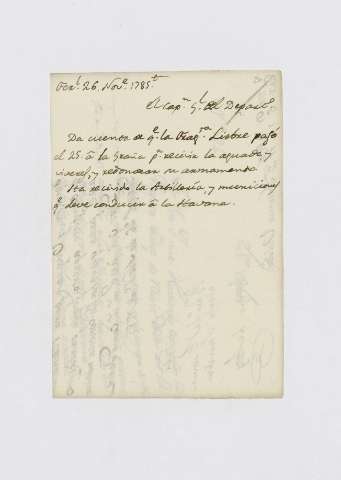 Ferl. 26 Nove. 1785.
El Capn. Gl. del Depart.
Da cuenta de qe. la Fraga. Liebre pasó
el 25 á la Graña pa. recivir la aguada, y
viveres, y redondear su armamento
Ha recivido la Artillería, y municiones
qe. deve conducir á la Havana.